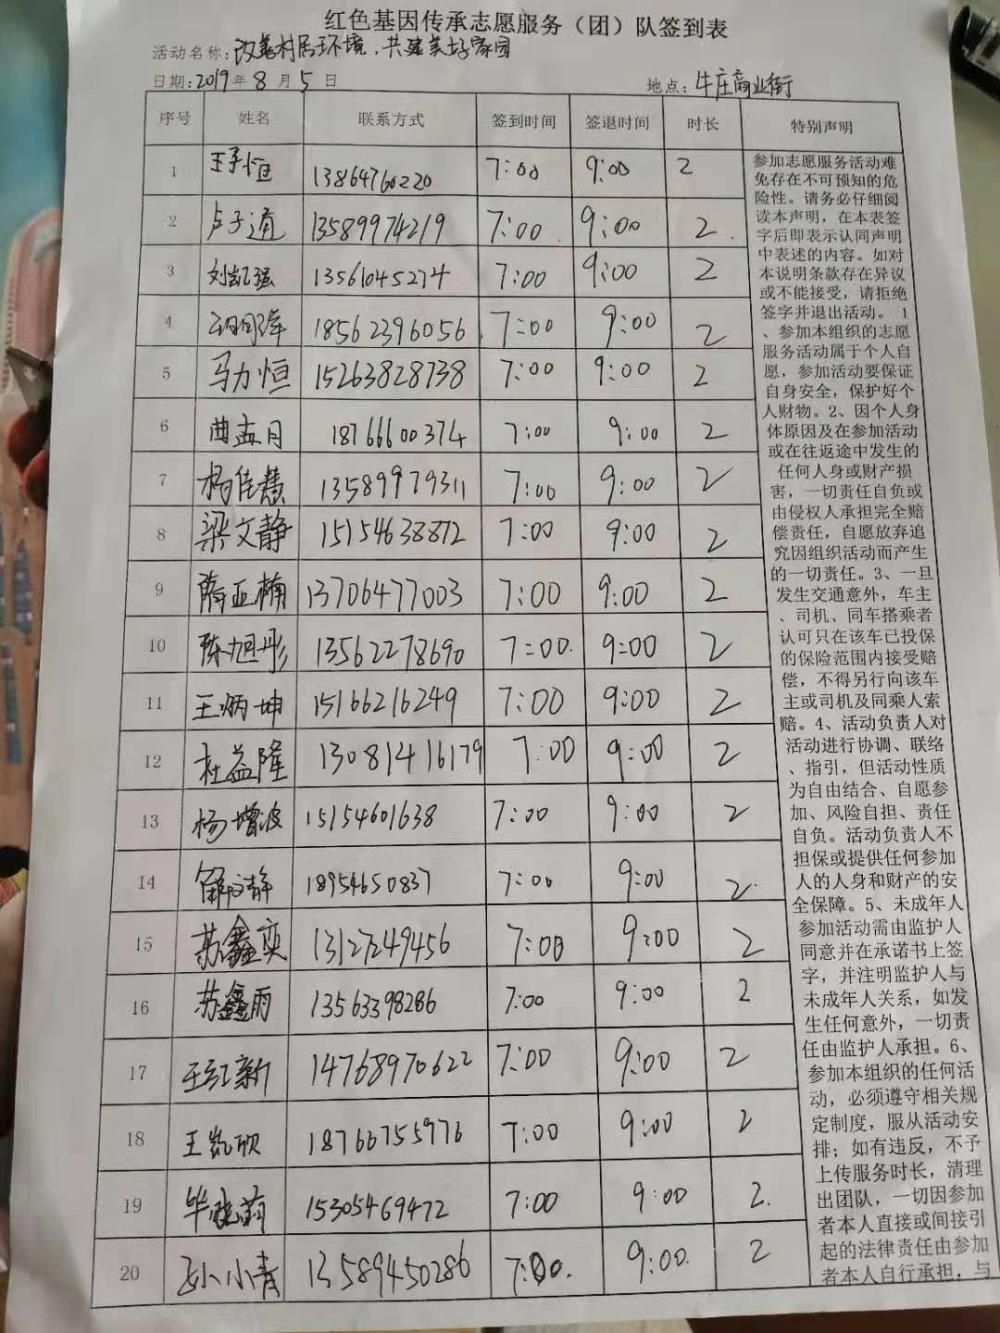 红色基因传承志愿服务（团）队签到表
活动名称：改善村居环境，共建美好家园
日期：2019年8月5日 地点：牛庄商业街
序号 姓名 联系方式 签到时间 签退时间 时长 特别声明
1 王子恒 13864760220 7:00 9:00 2
2 卢子道 13589974219 7:00 9:00 2
3 刘凯强 13561045274 7:00 9:00 2
4 18562396056 7:00 9:00 2
5 马力恒 15263828738 7:00 9:00 2
6 曲孟月 18766600374 7:00 9:00 2
7 杨佳慧 13589979311 7:00 9:00 2
8 梁文静 15154638872 7:00 9:00 2
9 薛亚楠 13706477003 7:00 9:00 2
10 陈旭彤 13562278690 7:00 9:00 2
11 王炳坤 15166216249 7:00 9:00 2
12 杜益隆 13081416179 7:00 9:00 2
13 杨增波 15154601638 7:00 9:00 2
14 解文静 18954650837 7:00 9:00 2
15 苏鑫奕 13127249456 7:00 9:00 2
16 苏鑫雨 13563398286 7:00 9:00 2
17 王红新 14768970622 7:00 9:00 2
18 王凯欣 18766755976 7:00 9:00 2
19 毕晓莉 15305469472 7:00 9:00 2
20 孙小青 13589450286 7:00 9:00 2
参加志愿服务活动难
免存在不可预知的危
险性。请务必仔细阅
读本声明，在本表签
字后即表示认同声明
中表述的内容。如对
本说明条款存在异议
或不能接受，请拒绝
签字并退出活动。1
、参加本组织的志愿
服务活动属于个人自
愿，参加活动要保证
自身安全，保护好个
人财物。2、因个人身
体原因及在参加活动
或在往返途中发生的
任何人身或财产损
害，一切责任自负或
由侵权人承担完全赔
偿责任，自愿放弃追
究因组织活动而产生
的一切责任。3、一旦
发生交通意外，车主
、司机、同车搭乘者
认可只在该车已投保
的保险范围内接受赔
偿，不得另行向该车
主或司机及同乘人索
赔。4、活动负责人对
活动进行协调、联络
、指引，但活动性质
为自由结合、自愿参
加、风险自担、责任
自负。活动负责人不
担保或提供任何参加
人的人身和财产的安
全保障。5、未成年人
参加活动需由监护人
同意并在承诺书上签
字，并注明监护人与
未成年人关系，如发
生任何意外，一切责
任由监护人承担。6、
参加本组织的任何活
动，必须遵守相关规
定制度，服从活动安
排；如有违反，不予
上传服务时长，清理
出团队，一切因参加
者本人直接或间接引
起的法律责任由参加
者本人自行承担，与